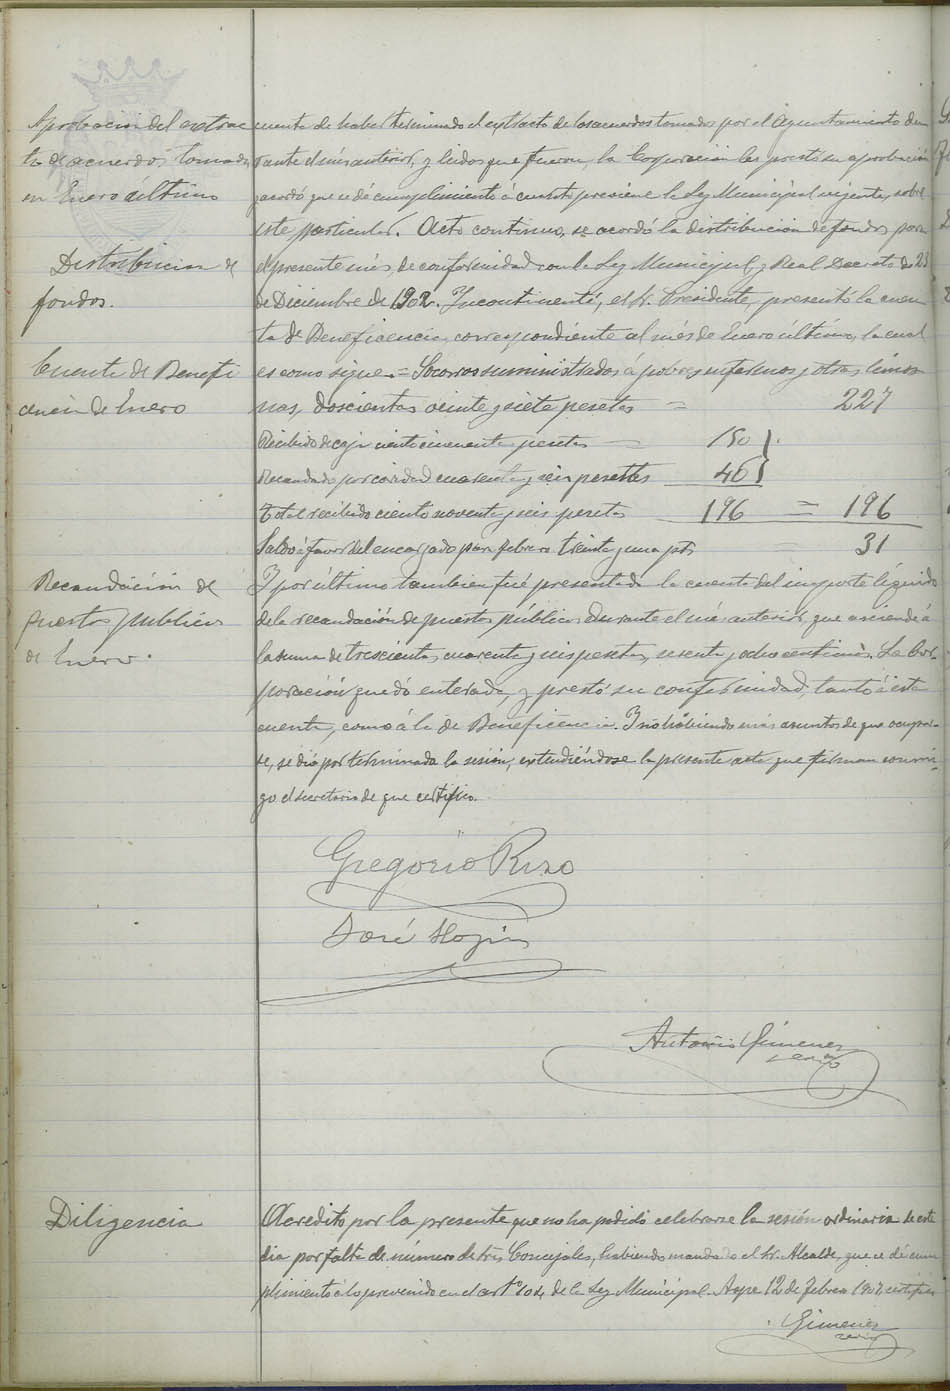 Aprobación del extrac
to de acuerdos tomados
en Enero último
cuenta de haber terminado el extracto de los acuerdos tomados por el Ayuntamiento du
rante el més anterior, y leidos que fueron, la Corporación les prestó su aprobación
y acordó que se dé cumplimiento á cuanto previene la Ley Municipal vigente, sobre
este particular. Acto continuo, se acordó la distribución de fondos para
Distribución de
fondos.
el presente més, de conformidad con la Ley Municipal, y Real Decreto de 23
de Diciembre de 1902. Incontinenti, el Sr. Presidente, presentó la cuen
ta de Beneficencia, correspondiente al més de Enero último, la cual
Cuenta de Benefi
cencia de Enero
es como sigue = Socorros suministrados á pobres enfermos y otras limos
nas, doscientas veinte y siete pesetas = 227
Recibido de caja ciento cincuenta pesetas = 150
Recaudado por caridad cuarenta y seis pesetas 46
Total recibido ciento noventa y seis pesetas 196 = 196
Saldo á favor del encargado para febrero treinta y una pts 31
Recaudación de
puestos publicos
de Enero.
Y por último tambien fué presentada la cuenta del importe líquido
de la recaudación de puestos públicos durante el més anterior, que asciende á
la suma de trescientas cuarenta y seis pesetas, sesenta y ocho centimos. La Cor
poración quedó enterada, y prestó su conformidad, tanto á esta
cuenta, como á la de Beneficencia. Y no habiendo más asuntos de que ocupar-
se, se dió por terminada la sesión, extendiéndose la presente acta que firman conmi-
go el secretario de que certifico.
Gregorio Rizo
José
Antonio Gimenez
srio
Diligencia
Acredito por la presente que no ha podido celebrarse la sesión ordinaria de este
dia por falta de número de tres Concejales, habiendo mandado el Sr. Alcalde, que se dé cum
plimiento á lo prevenido en el artº 104 de la Ley Municipal. Aspe 12 de febrero 1907, certifico
Gimenez
srio